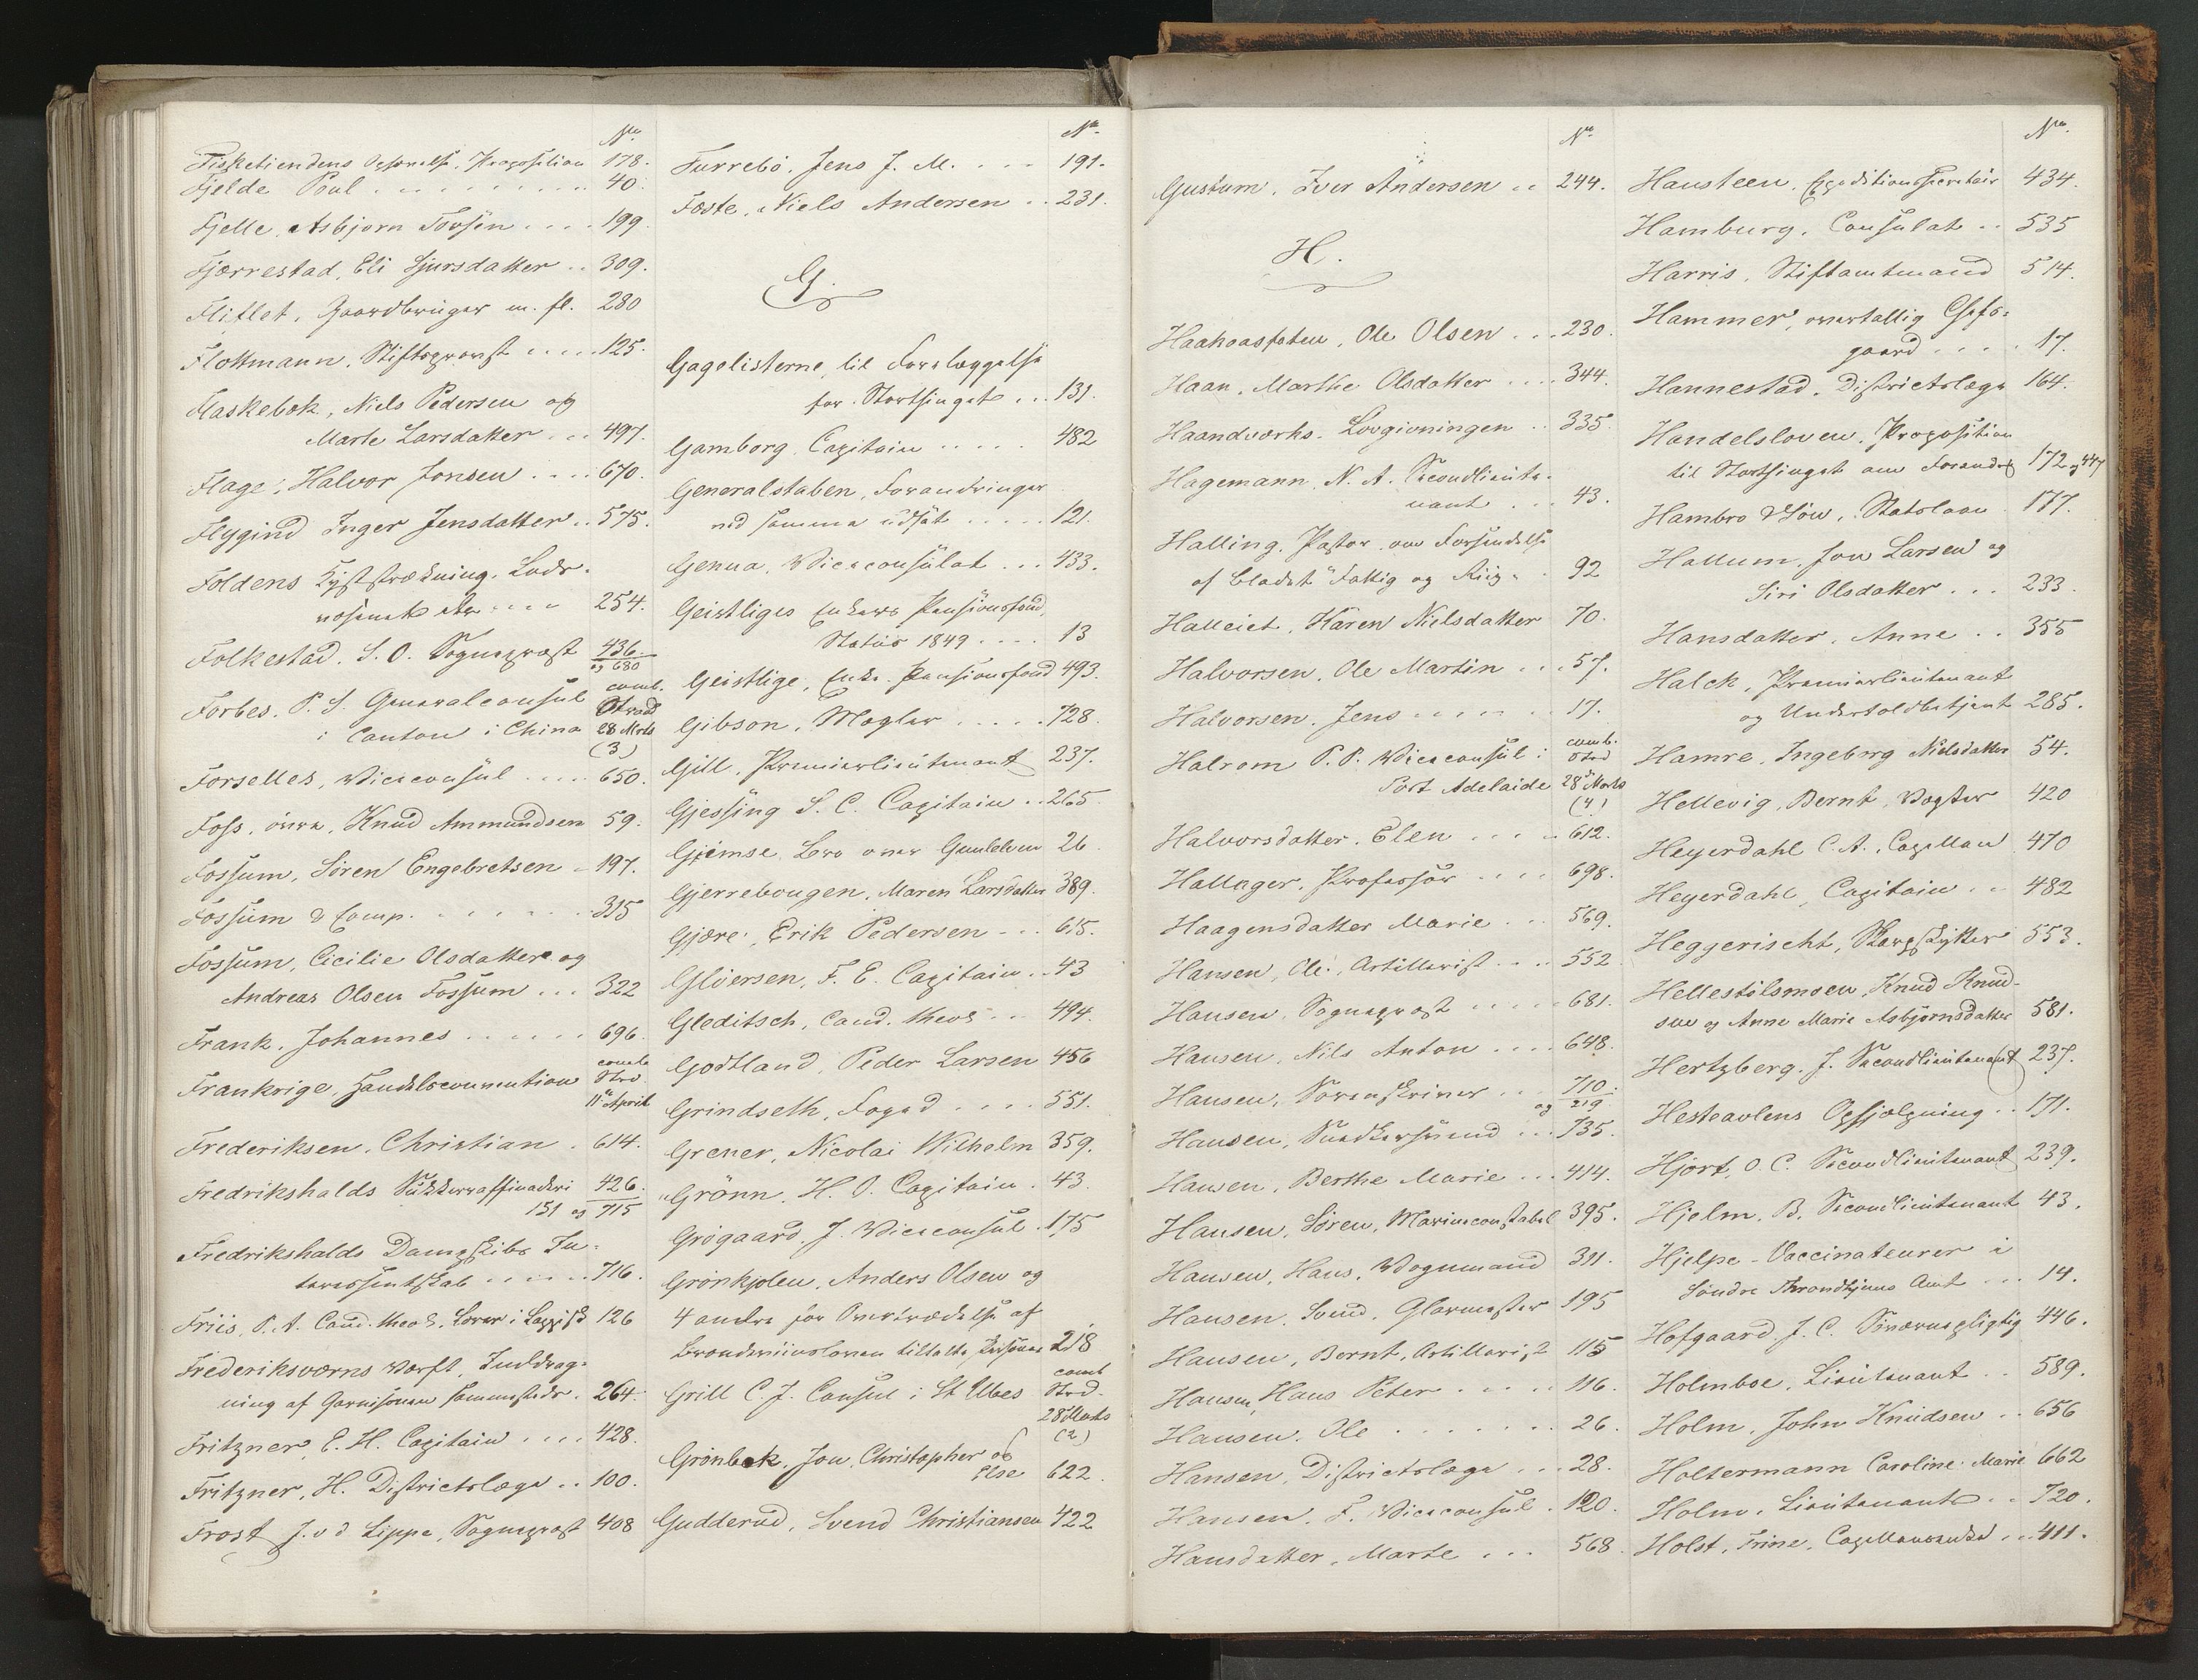 No.
Fisketiendens Proposition 178.
Fjelde Poul 40.
Fjelle, Asbjørn Torsen 199.
Fjærrestad, Eli Sjursdatter 309.
Flitlet, Gaardbruger m. fl. 280
Flottmann, Stiftsprovst 125.
Flaskebæk, Niels Pedersen og
Marte Larsdatter 497.
Flage, Halvor Jonsen 670.
Flygind Inger Jensdatter 575.
Foldens Kyststrækning, Lods-
væsenet etc 254.
Folkestad, S. O. Sognepræst 436
og 680
Forbes, P. S. Generalconsul comb. Strd
i Canton i China 28 Marts
(3)
Forselles, Viceconsul 650.
Foss, øvre, Knud Ammundsen 59.
Fossum, Søren Engebretsen 197.
Fossum & Comp. 315
Fossum, Cicilie Olsdatter og
Andreas Olsen Fossum 322
Frank, Johannes 696
Frankrige, Handelsconvention comb. Strd.
11te April
Frederiksen, Christian 614.
Fredrikshalds Sukkerraffinaderi 426.
151 og 715
Fredrikshalds Dampskibs In-
teressentskab 716.
Friis, P. A. Cand. theol. Lærer i Lappisk 126
Frederiksværns Værft, Inddrag-
ning af Garnisonen sammesteds. 264.
Fritzner, E. H. Capitain 428.
Fritzner, H. Districtslæge 100.
Frost J. v d Lippe, Sognepræst 408
No.
Furrebø, Jens J. M. 191.
Fæste, Niels Andersen 231.
G.
Gagelisterne, til Forelæggelse
for Storthinget 131.
Gamborg, Capitain 482
Generalstaben, Forandringer
ved samme udsat 121.
Genua, Viceconsulat 433.
Geistliges Enkers Pensionsfond,
Status 1849 13
Geistlige, Enke-Pensionsfond 493.
Gibson, Mægler 728.
Gill, Premierlieutenant 237.
Gjessing S. C. Capitain 265.
Gjeimse, Bro over Gunlelven 26.
Gjerrebougen, Maren Larsdatter 389.
Gjære, Erik Pedersen 615.
Gløersen, F. E. Capitain 43
Gleditsch, Cand. theol 494.
Godtland, Peder Larsen 456
Grindseth, Foged 551.
Grener, Nicolai Wilhelm 359.
Grønn, H. O. Capitain 43.
Grøgaard, J. Viceconsul 175
Grønkjolen, Anders Olsen og
4 andre for Overtrædelse af
Brændeviinsloven tiltalte Personer 218
Grill C. J. Consul i St Ubes comb Strd.
28 Marts
(2)
Grønbek, Jon, Christopher og
Else 622.
Gudderud, Svend Christiansen 422
No.
Gustum, Iver Andersen 244.
H.
Haakaasfoten, Ole Olsen 230.
Haan, Marthe Olsdatter 344.
Haandværks-Lovgivningen 335.
Hagemann, N. A. Secondlieute-
nant 43.
Halling, Pastor, om Forsendelse
af Bladet "Fattig og Riig" 92
Halleiet, Karen Nielsdatter 70.
Halvorsen, Ole Martin 57.
Halvorsen, Jens 17.
Halrom P. P. Viceconsul i comb. Strd
Port Adelaide 28 Marts
(4)
Halvorsdatter, Elen 612.
Hallager, Professor 698.
Haagensdatter Marie 569.
Hansen, Ole, Artillerist 552
Hansen, Sognepræst 681.
Hansen, Nils Anton 648.
Hansen, Sorenskriver 710.
og 219
Hansen, Snedkersvend 735.
Hansen, Berthe Marie 414.
Hansen, Søren, Marineconstabel 395.
Hansen, Hans, Vognmand 311.
Hansen, Svend, Glarmester 195
Hansen, Bernt, Artillerist 115
Hansen, Hans Peter 116.
Hansen, Ole 26.
Hansen, Districtslæge 28.
Hansen, F. Viceconsul 120.
Hansdatter, Marte 568
No.
Hansteen, Expeditionssecretair 434.
Hamburg, Consulat 535
Harris, Stiftamtmand 514.
Hammer, overtallig Chefs-
gaard 17.
Hannestad, Districtslæge 164.
Handelsloven, Proposition
til Storthinget om Forandr. 172 og 447
Hambro & Søn, Statslaan 177.
Hallum, Jon Larsen og
Siri Olsdatter 233.
Hansdatter, Anne 355
Halck, Premierlieutenant
og Undertoldbetjent 285.
Hamre, Ingeborg Nielsdatter 54.
Hellevig, Bernt, Vægter 420
Heyerdahl C. A., Capellan 470
Heyerdahl, Capitain 482
Heggerischt, Skarpskytter 553.
Hellestølsmoen, Knud Knud-
sen og Anne Marie Asbjørnsdatter 581.
Hertzberg, J. Secondlieutenant 237.
Hesteavlens Ophjælpning 171.
Hjort, O. C. Secondlieutenant 239.
Hjelm, B. Secondlieutenant 43.
Hjelpe-Vaccinateurer i
Søndre Throndhjems Amt 14.
Hofgaard, J. C. Sværnepligtig 446.
Holmboe, Lieutenant 589.
Holm, John Knudsen 656
Holtermann Caroline Marie 662
Holm, Lieutenant 720.
Holst, Trine, Capellansenke 411.